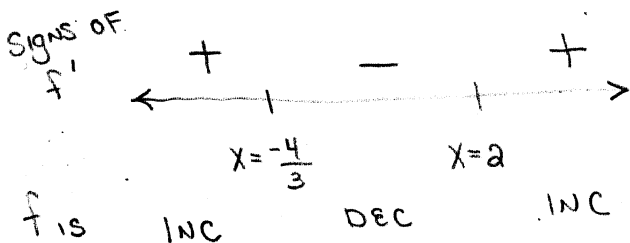 Signs OF
f'
+ − +
x = -4/3 x = 2
f is INC DEC INC